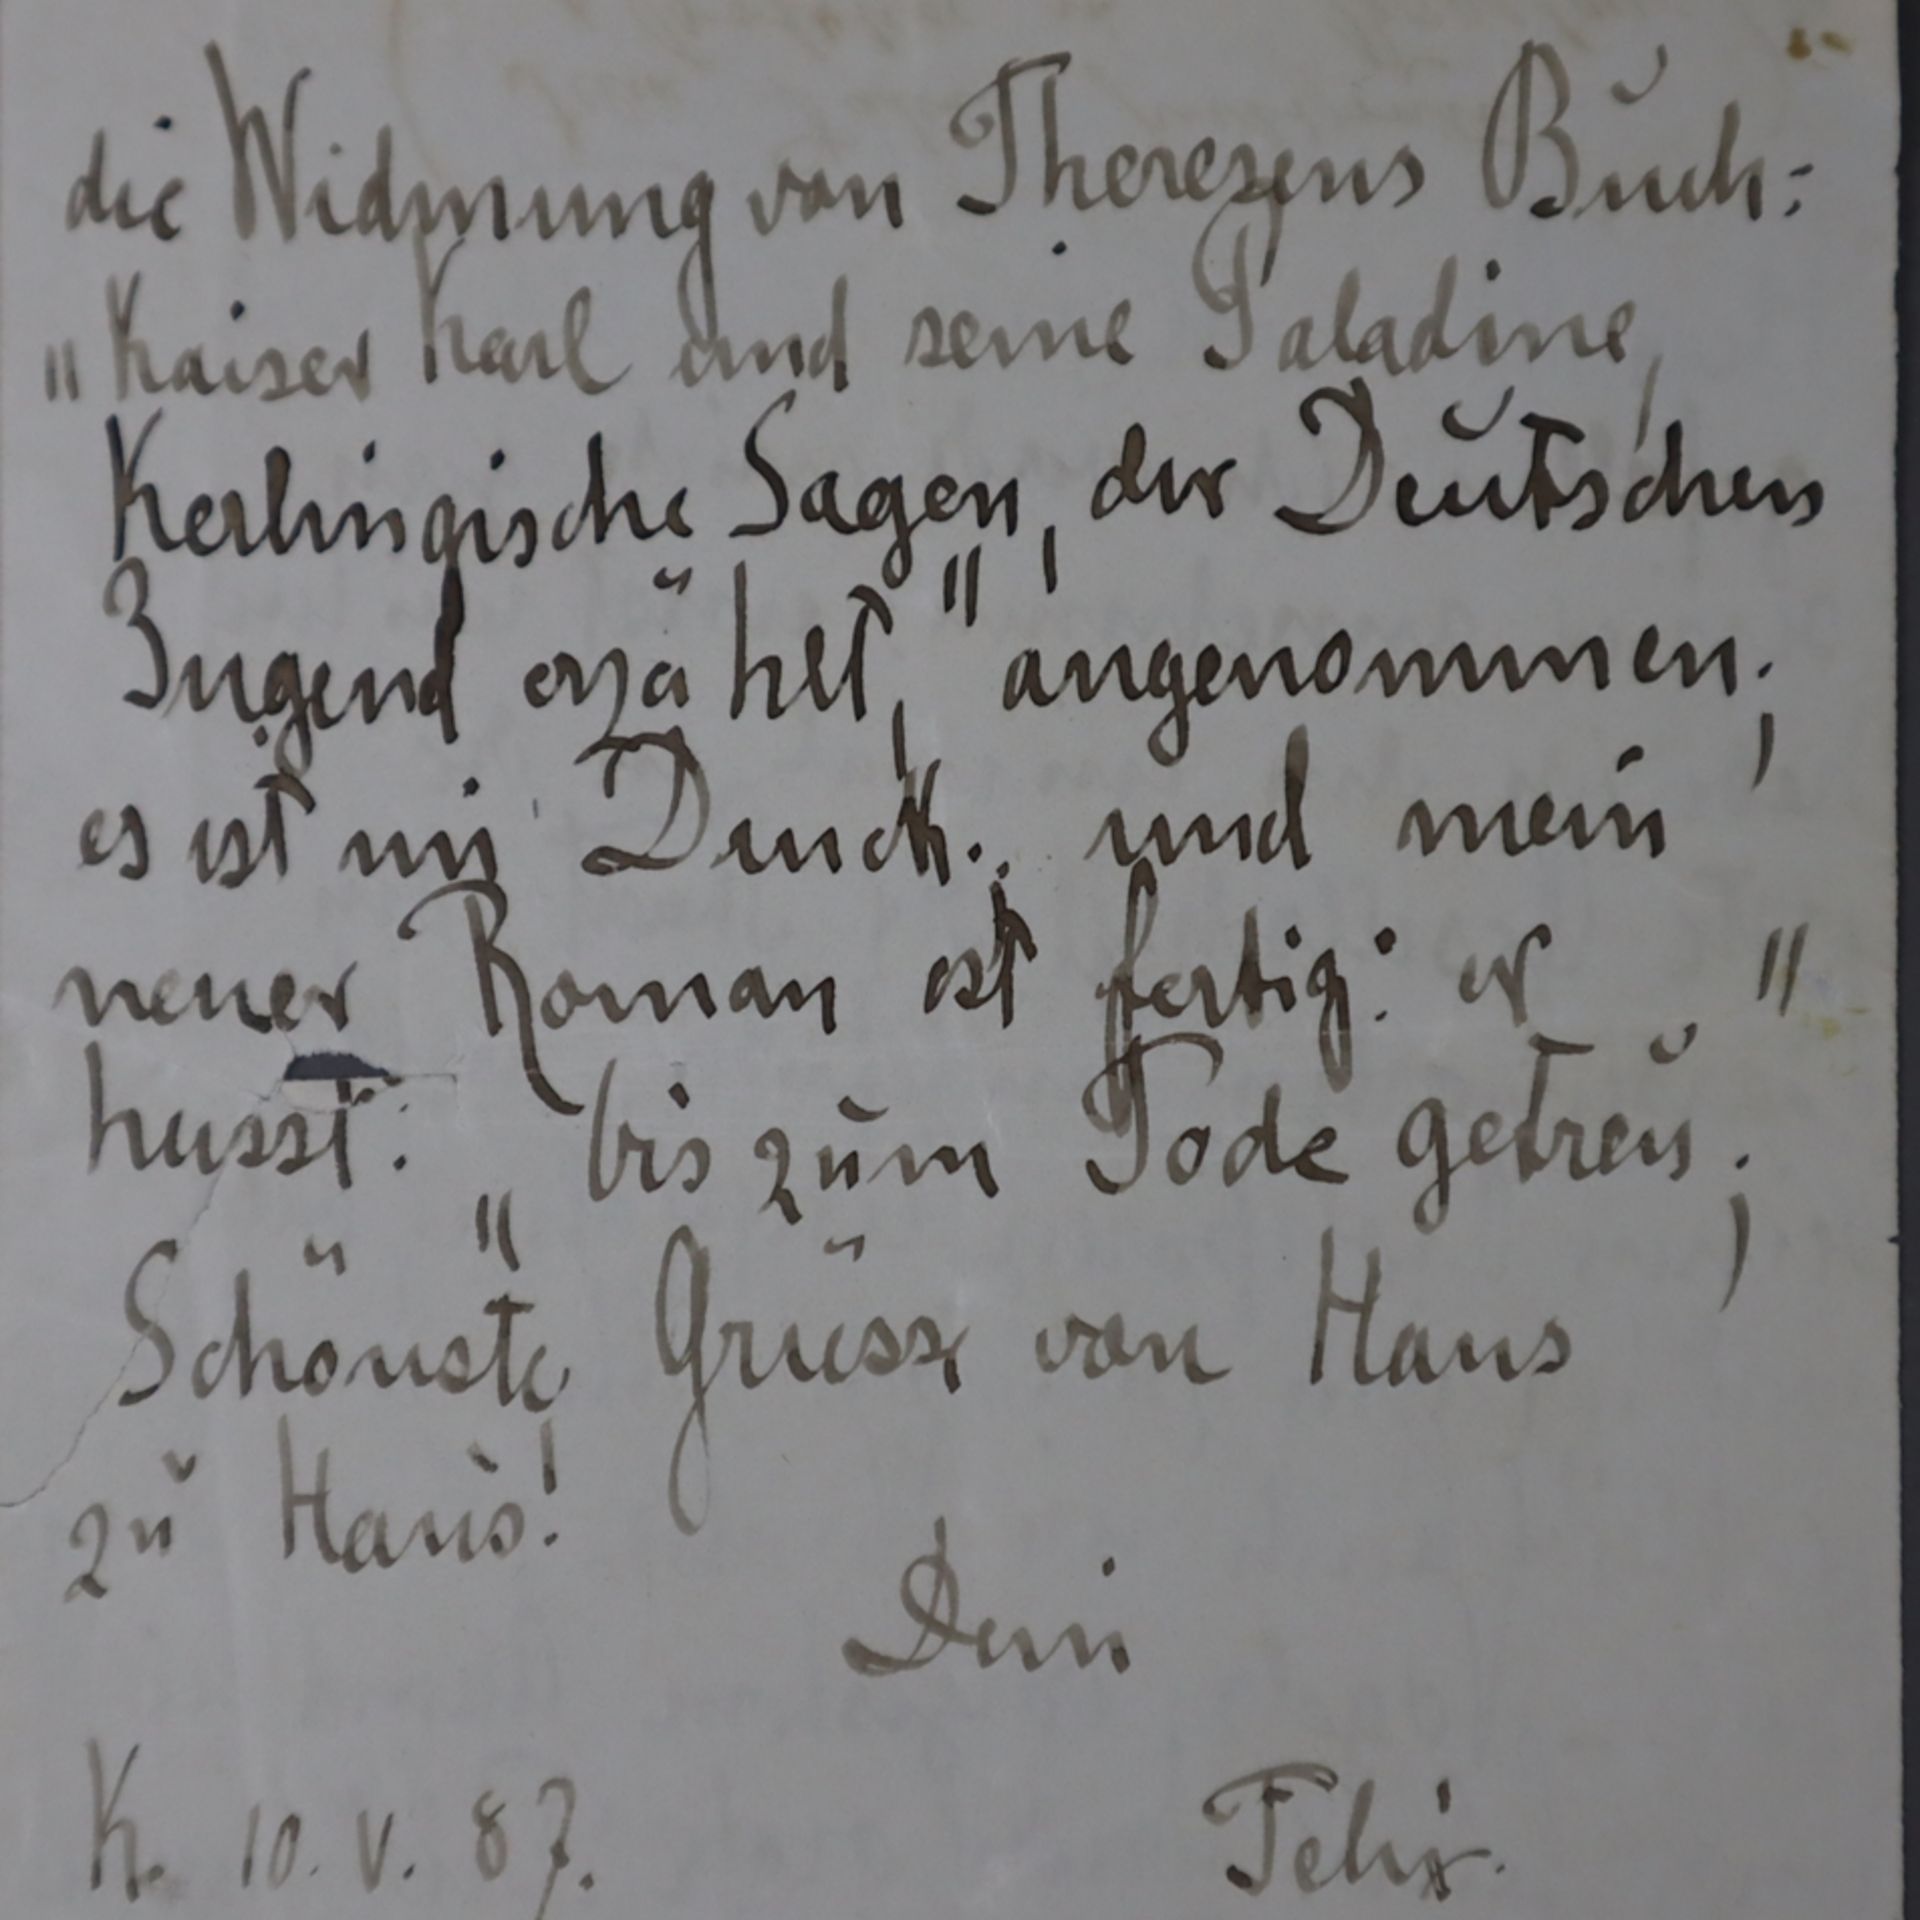 die Widmung von Theresens Buch:
"Kaiser Karl und seine Paladine,
Kerlingische Sagen, der Deutschen
Jugend erzählt," angenommen;
es ist im Druck; und mein
neuer Roman ist fertig: er "
heisst: bis zum Tode getreu;
Schönste " Grüsse von Haus
zu Haus!
Dein
K. 10. V. 87. Felix.